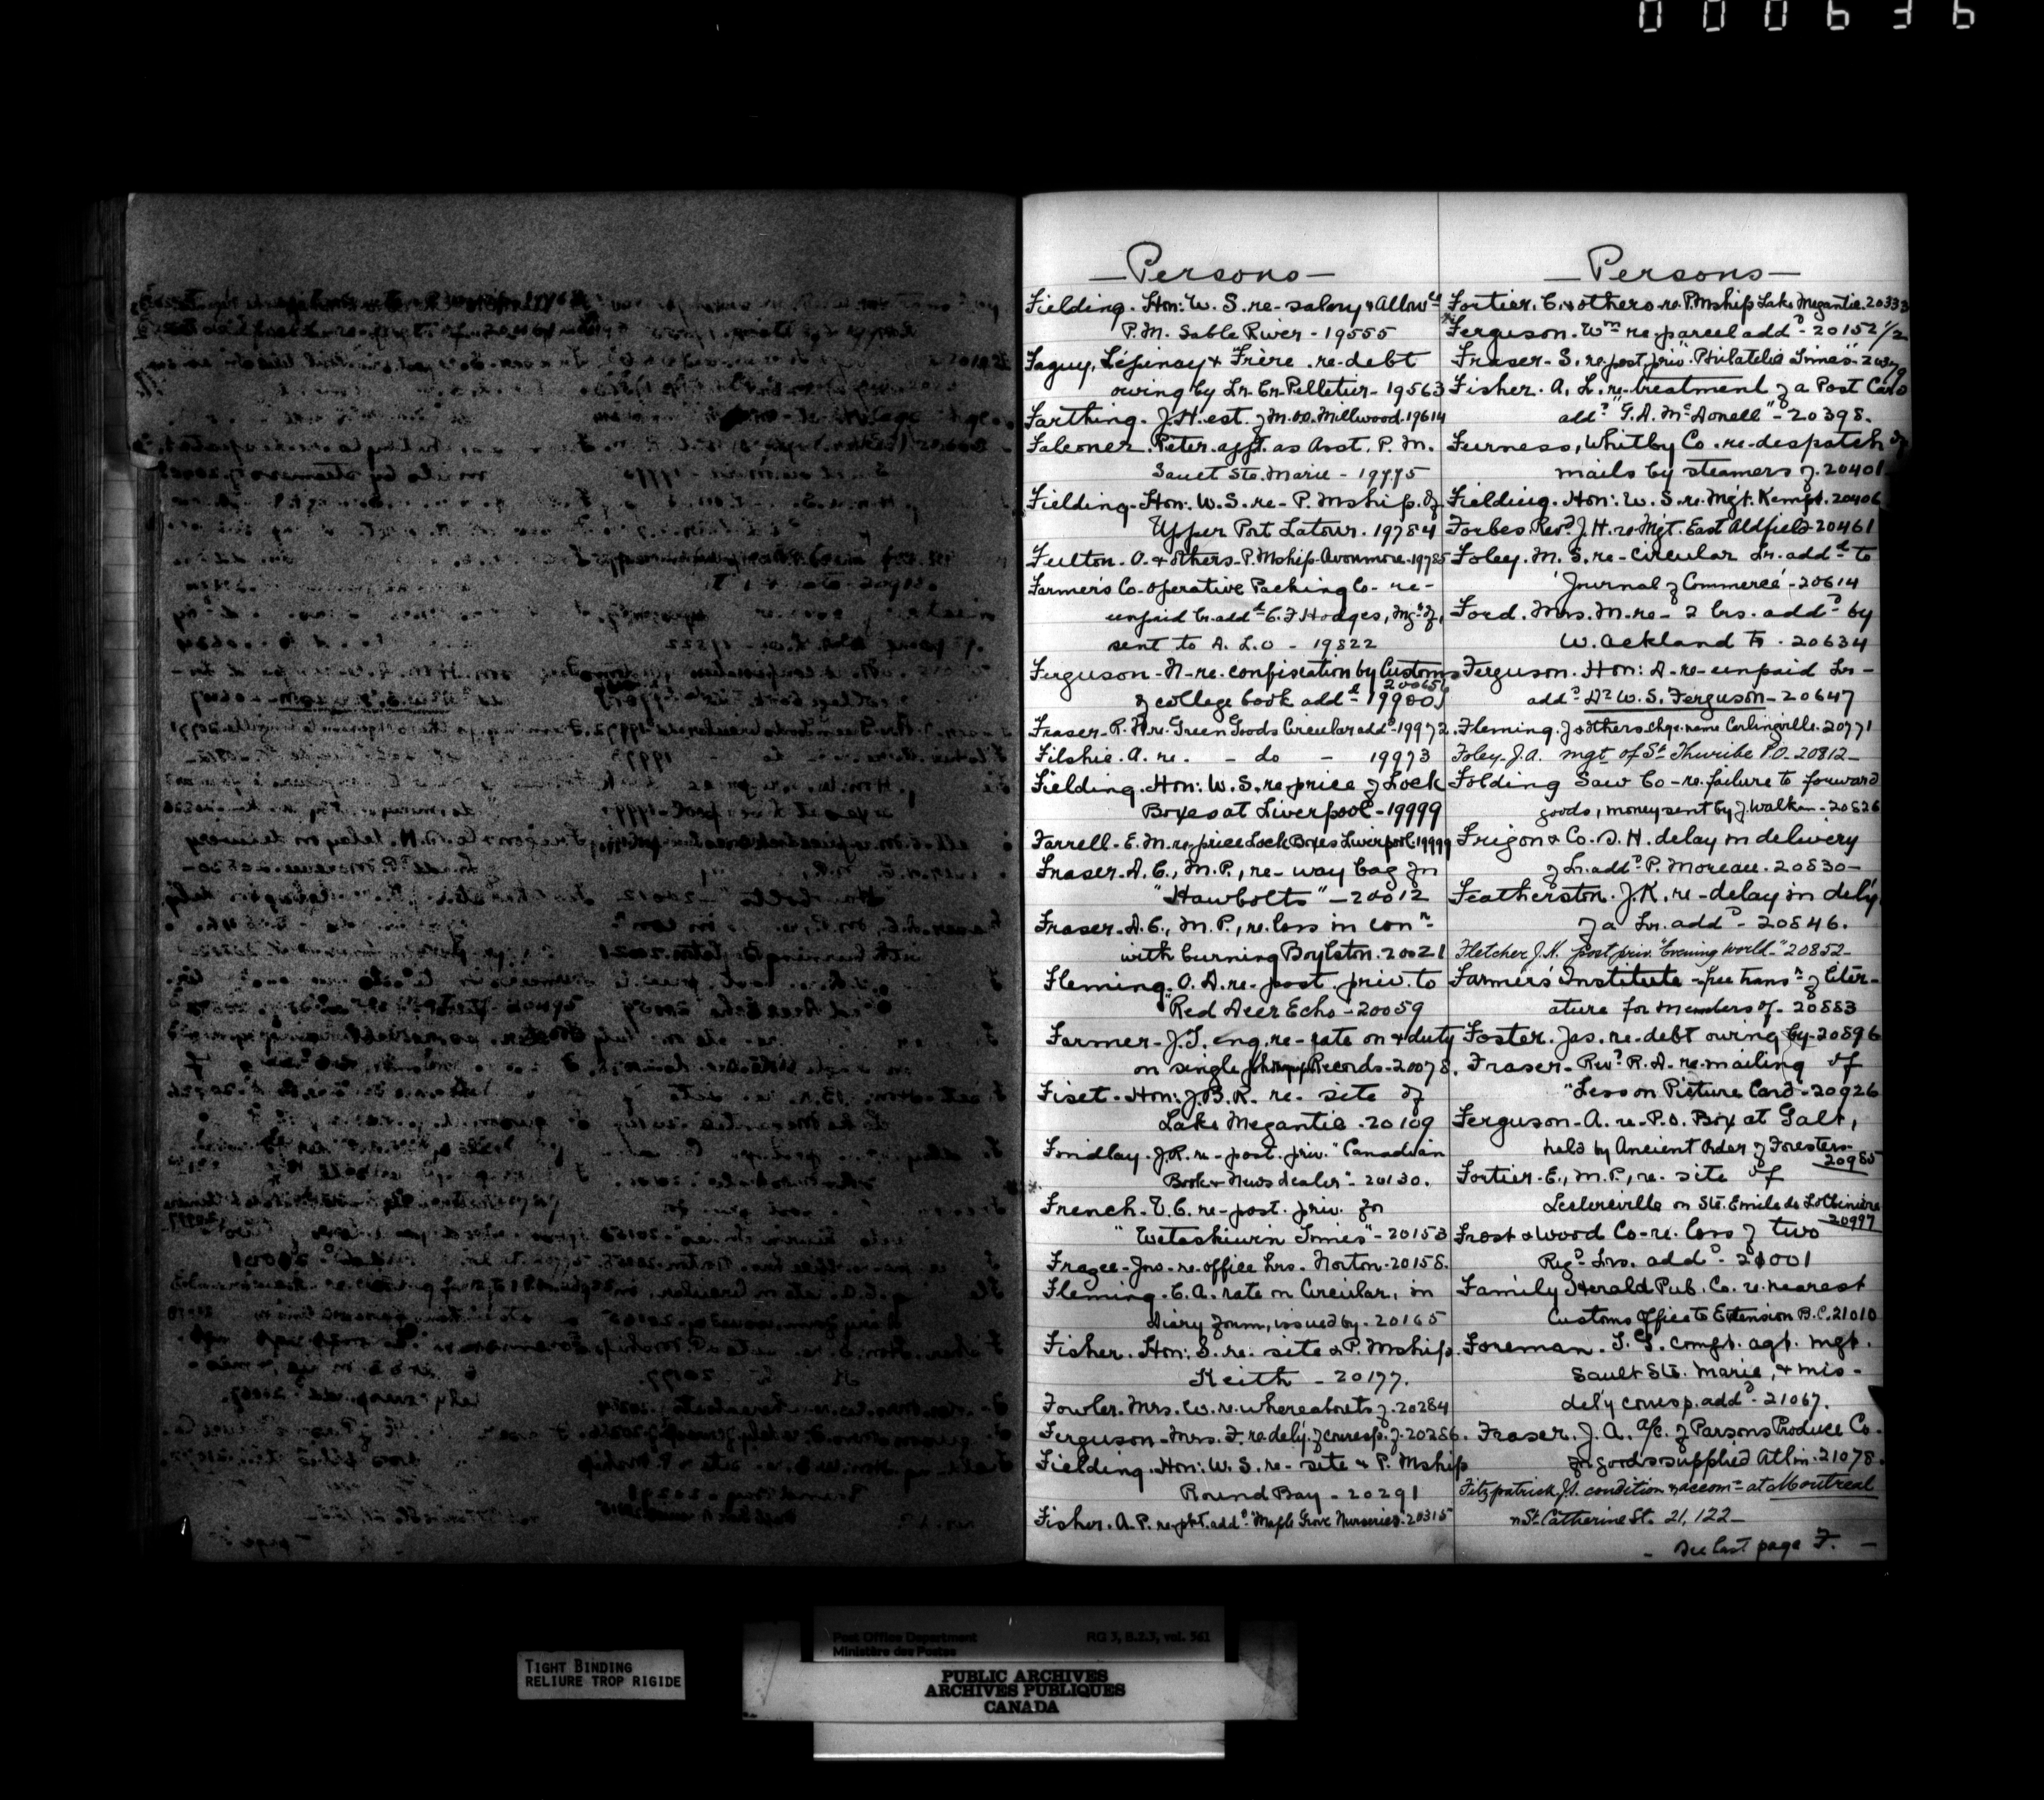 000636
Persons
Fielding. Hon: W. S. re- salary & Allowce
P.M. Sable River - 19555
Faguy, Lépinay & Frère. re- debt
owing by Lr. Cr. Pelletier - 19563
Farthing. J. H. est. of M.O.O. Millwood. 19614
Falconer. Peter. appt. as Asst. P. M.
Sault Ste. Marie - 19775
Fielding. Hon: W. S. re- P. Mship. of
Upper Port Latour. 19784
Fulton. O. & others. P. Mship Avonmore. 19785
Farmer's Co-operative Packing Co- re-
unpaid lr. add d C. F. Hodges, Mgr. of,
sent to D. L. O - 19822
Ferguson - N - re. confiscation by Customs
of college book add d 19900,
200656
Fraser - R. H. re. Green Goods Circular add d 19972.
Filshie. A. re. - do - 19973
Fielding. Hon: W. S. re price of Lock
Boxes at Liverpool - 19999
Farrell - E. M. re price Lock Boxes Liverpool. 19999
Fraser. D. C., M.P., re- way bag for
"Hawbolts" - 20012
Fraser. D. C., M. P., re. loss in conn
with burning Boylston. 20021
Fleming. O. A. re- post. priv. to
"Red Deer Echo - 20059
Farmer - J. T. enq. re- rate on & duty
on single Records - 20078.
Fiset. Hon: J. B. R. re. site of
Lake Megantic. 20109
Findlay. J. R. re- post. priv. "Canadian
Book & News dealer" - 20130.
French - V. C. re- post. priv. for
"Wetaskiwin Times" - 20153
Frazee - Jas - re. office hrs. Norton - 20158.
Fleming. C. A. rate on Circular, in
Diary form, issued by. 20165
Fisher. Hon: S. re. site & P. Mship.
Keith - 20177.
Fowler. Mrs. W. re. whereabouts of. 20284
Ferguson - Mrs. F. re dely. of corresp. of. 20286.
Fielding. Hon: W. S. re- site & P. Mship
Round Bay - 20291
Fisher. A. P. re pkt. add d "Maple Grove Nurseries". 20315
Persons
Fortier. C. & others. re. P. Mship Lake Megantic. 20333
Ferguson. Wm re parcel add d - 20152 1/2
Fraser - S. re. post priv. "Philatelic Times" - 20379
Fisher. A. L. re- treatment of a Post Card
add d "G. A. McDonell" - 20398.
Furness, Whitby Co. re- despatch of
mails by steamers of. 20401
Fielding. Hon: W. S. re. Mgt. Kempt. 20406
Forbes Revd J. H. re- Mgt. East Aldfield - 20461
Foley. M. S. re- circular Lr. add d to
"Journal of Commerce" - 20614
Ford. Mrs. M. re - 2 lrs. add d by
W. Ackland to. 20634
Ferguson. Hon: D. re- unpaid Lr -
add d Dr W. S. Ferguson - 20647
Fleming. J. & others chge. name Carlingville. 20771
Foley. J. A. mgt of St Thuribe P.O. 20812 -
Folding Saw Co - re. failure to forward
goods, money sent by J. Walker - 20826
Frigon & Co. D. H. delay in delivery
of Lr. add d P. Moreau. 20830 -
Featherston. J. K. re - delay in dely.
of a Lr. add d - 20846.
Fletcher J. H. post priv. "Evening World" - 20852 -
Farmer's Institute - free transn of liter-
ature for members of - 20883
Foster. Jas. re. debt owing by - 20896
Fraser - Revd R. D. re- mailing of
"Lesson Picture Card - 20926
Ferguson - A. re- P.O. Box at Galt,
held by Ancient Order of Foresters -
20985
Fortier. E., M.P., re- site of
Leclercville or Ste. Emile de Lotbinière
20997
Frost & Wood Co - re. loss of two
Regd Lrs. add d - 21001
Family Herald Pub. Co. re nearest
Customs Office to Extension B.C. 21010
Foreman. T. G. compt. agt. mgt.
Sault Ste. Marie, & mis-
dely corresp. add d - 21067.
Fraser. J. A. a/c. of Parsons Produce Co.
for goods supplied Atlin. 21078.
Fitzpatrick J. condition & accomn at Montreal
n St Catherine St. 21,122 -
- See last page F. -
Post Office Department
Ministère des Postes
RG 3, B.2.3, vol. 561
TIGHT BINDING
RELIURE TROP RIGIDE
PUBLIC ARCHIVES
ARCHIVES PUBLIQUES
CANADA